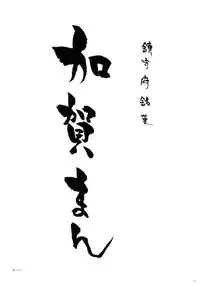 鎮守府銘菓
加賀まん